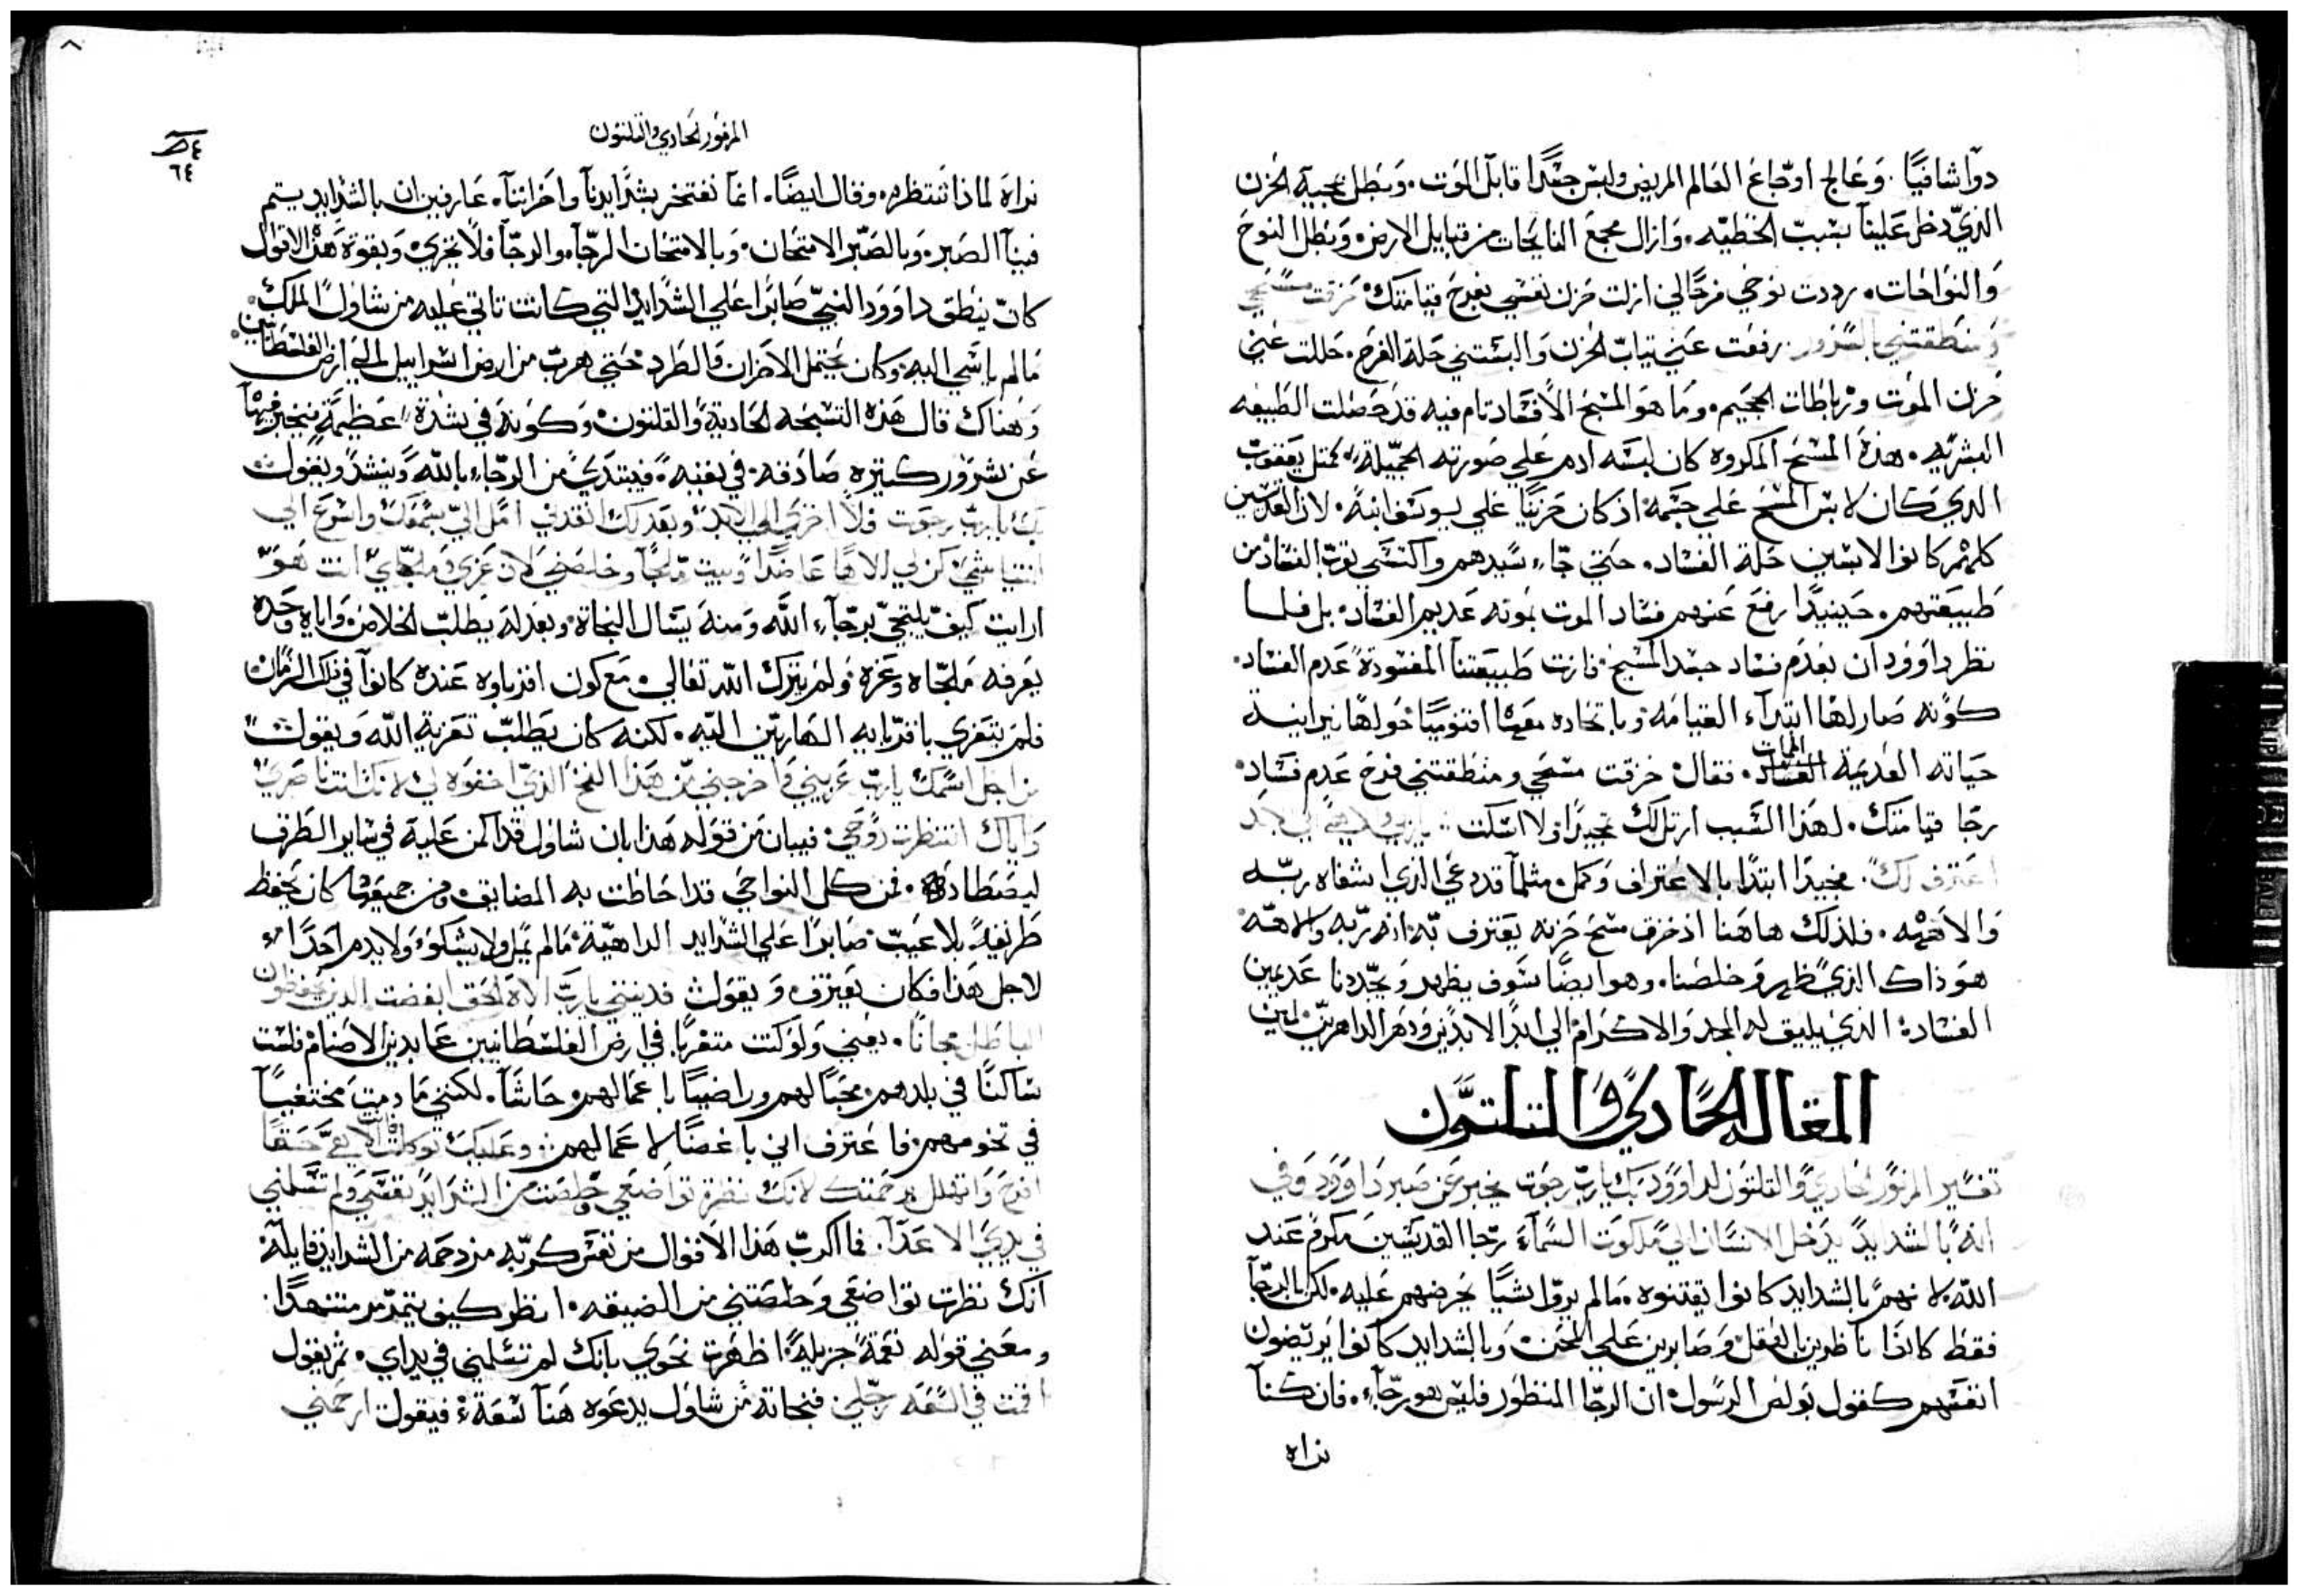 دوآ شافيًا. وَعَالج اوجَاع العَالم المريض ولبس جسَدًا قابل الموت. وَبطل بمجيه الحزن
الذي دخل عَلينا بسَبب الخطيه. وَازال مجمع النايحات من قبايل الارض وَبطل النوح
وَالنواحَات. رددت نوحي فرحًا لي ازلت حزن نفسي بفرح قيامتك مزقت مسحي
ومنطقتني بالسرور. رفعت عني تياب الحزن وَالبستني حلة الفرح. حللت عني
حزن الموت ورباطات الجحيم. ومَا هوَ المسح الا فسَاد تام فيه قد حَصلت الطبيعه
البشريه. هذا المسَح المكروه كان لبسَه ادم عَلي صَورته الجميلة كمتل يعقوب
الدي كان لابس المسح علي جسمه اذ كان حزينًا علي يوسَف ابنه. لان القديسين
كلهم كانوا لابسين حَلة الفسَاد. حتي جَاء سَيدهم واكتسَي بقوب الفسَاد من
طبيعتهم. حينيدًا رفع عنهم فسَاد الموت بموته عَديم الفسَاد. بل فلما
نظر داوود ان بعَدم فسَاد جسَد المسيح. فازت طبيعتنا المفسودة عَدم الفسَاد.
كونه صَار لها ابتدآء القيامه. وباتحاده معها اقنوميًا خولها نيرانية
حياته العَديمة الممات الفساد. فقال خرقت مسحي ومنطقتني فرح عَدم فسَاد.
رجَا قيامتك. لهذا السَبب ارتل لك تمجيدًا ولا اسكت : ياربي والهي الي الابد
اعترف لك. مجيدًا ابتدا بالاعتراف وكمل متلمآ قد دعَي الذي اشفاه ربّه
وَالاهه. فلذلك هاهنا اذ خزق مسح حزنه يعَترف به. انه ربه والاهه
هوَ ذاك الذي ظهر وخلصنا. وهو ايضًا سَوف يظهر وَيجددنا عَديمين
الفسَاد. الدي يليق له المجد والاكرام الي ابد الابدين ودهر الداهرين امين
المقاله الحَادي وَالتلتون
تفسير المزمور الحادي وَالتلتون لداوود بك يارب رجوت يخبر عن صَبر داوود وَفي
انه بالشدايد يدخل الانسَان الي ملكوت السمآء رجا القديسين مكرم عند
الله. لانهم بالشدايد كانوا يقتنوه. مَالم يروا شيًا يحرضهم عليه. لكن بالرجآ
فقط كانوا ناظرين بالعقل وصَابرين عَلي المحن. وبالشدايد كانوا يرتضون
انفسَهم كقول بولص الرسول ان الرجَا المنظور فليس هو رجَآء. فان كنآ
نراه
المزمور الحادي والتلتون
٦٤
نراه لماذا نَنتظره. وقال ايضًا. انمآ نفتخر بشدايدنآ واحزاننآ. عَارفين ان بالشدايد يتم
فينآ الصَبر. وَبالصَبر الامتحَان. وَبالامتحَان الرجآء. والرجآ فلا يخزي. وَبقوة هذه الاقوال
كان ينطق داوود النبي صَابرًا علي الشدايد التي كانت تاتي عليه من شاول الملك.
مَالم ياسَي اليه. وكان يحتمل الاحزان والطرد حَتي هرب من ارض اسرَاييل الي ارض الفلسطانيين.
وَهناك قال هَذه التسبحه الحَادية والتلتون. وكونه في شدة عَظيمَة ينخبر فيهآ
عَن شرور كتيره صَادفته في نفيه. فيبتدي من الرجاء بالله وَينشد ويقول
بك يارب رجوت فلا اخزي الي الابد وبعَدلك انقدني امل الي سَمعك واسرع الي
انتياشي كن لي الاها عَاضدًا وبيت ملجآ وخلصني لان عَزي وملجاي انت هو
ارايت كيف يلتجي برجآء الله وَمنه يسَال النجاة. وبعدله يطلب الخلاص. وَاياه وحَده
يعرفه ملجاه وعزه. ولم يترك الله تعالي. مع كون اقرباوه عَنده كانوآ في ذلك الزمان
فلم يتعزي باقربايه الهاربين اليه. لكنه كان يطلب تعَزية الله وَيقول
من اجل اسمك يارب عَزيني وَاخرجني من هذا الفخ الذي اخفوه لي لانك انت ناصري
وَاياك انتظرت روحي. فيبان من قوله هذا بان شاول قد اكمن عَلية في سَاير الطرق
ليصَطاده. فمن كل النواحي قد احَاطت به المضايق. ومن جميعها كان يحفظ
طريقه بلا عَيب صَابرًا عَلي الشدايد الداهية. مَالم يمل ولا يشكو. وَلا يدم احدًا.
لاجل هَذا فكان يعَترف وَيقول فديتني يارب الاه الحَق ابغضت الدين يحفظون
الباطل مجانا. يعني وَلو كنت متغربا في ارض الفلسطانيين عَابدين الاصنام. فلست
سَاكنًا في بلدهم. محَبًا لهم وراضيًا باعمَالهم. حَاشَا. لكنني مَا دمت مختفيآ
في تخومهم. فاعترف اني باغضًا لاعَمالهم. وعَليك توكلت
افرح وَاتهلل برحمتك لانك نظرت توَاضعي وخلصت من الشدايد نفسَي ولم تسَلمني
في يدي الاعَدآ. فما اكرب هَذا الاقوال من نفس كربه مزدحمه من الشدايد قايلة.
انك نظرت تواضعَي وَخلصَتني من الضيقه. انظر كيف يتمدمر متنهدًا.
ومعَني قوله نعَمة جزيلة اظهرت نحوي بانك لم تسَلمني في يداي. تم يقول
اقمت في السَعَه رجلي فنجاته من شاول يدعَوه هَنآ سَعَة. فيقول ارحمني